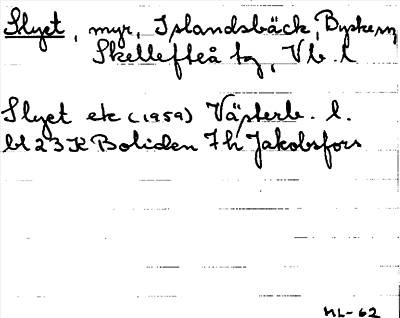 Slyet, myr, Islandsbäck, Byske sn
Skellefteå tg, Vb. l
Slyet ek (1959) Västerb. l.
bl 23 K Boliden 7 h Jakobsfors
ML-62